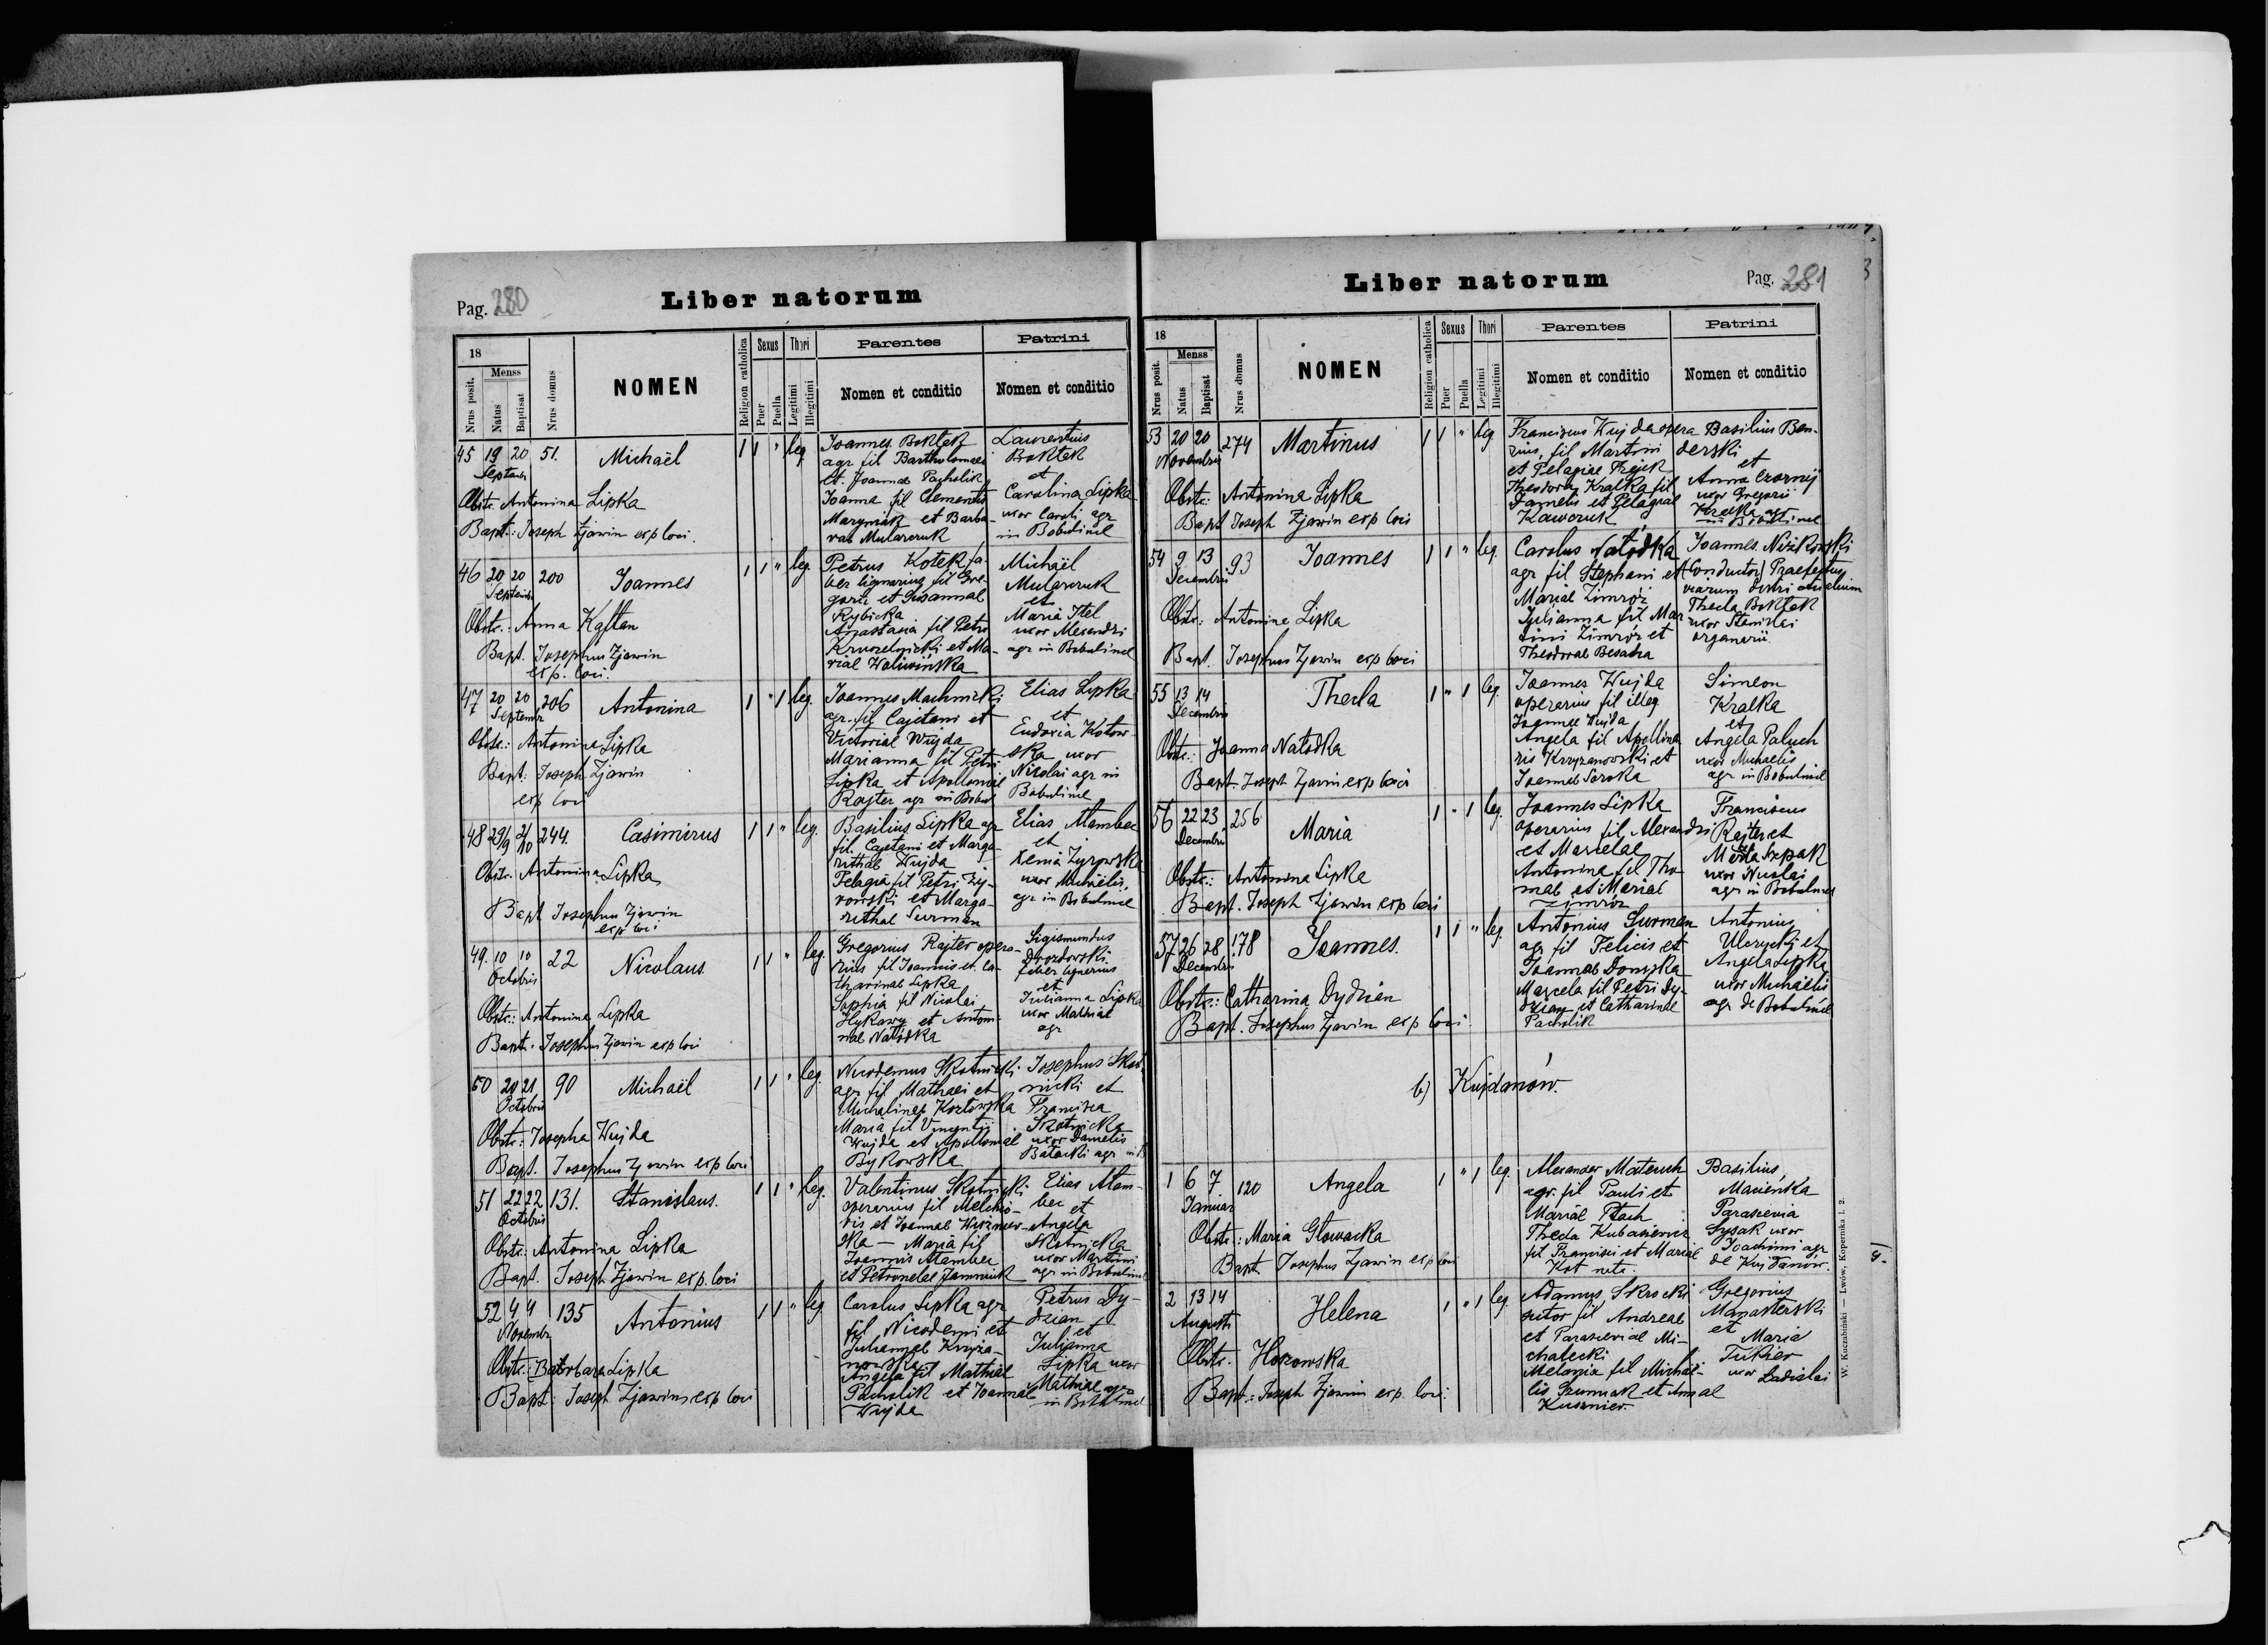 Pag. 280
Liber natorum
18
Nrus posit.
Menss
Natus
Baptisat
Nrus domus
NOMEN
Religion catholica
Sexus
Puer
Puella
Thori
Legitimi
Illegitimi
Parentes
Nomen et conditio
Patrini
Nomen et conditio
45 19 20 51. Michaël 1 1 " leg.
Septembr
Obstr. Antonina Lipka
Bapt.: Joseph Zjawin exp loci.
Joannes Boktek
agr fil Bartholomaei
et Joannae Pacholik
Joanna fil Clementis
Maryniak et Barba-
rae Mularczuk
Laurentius
Boktek
et
Carolina Lipka
uxor Caroli agr
in Bobulince
46 20 20 200 Joannes 1 1 " leg.
Septembr
Obstr.: Anna Kaftan
Bapt. Josephus Zjawin
exp. loci.
Petrus Kotek fa-
ber lignarius fil Gre-
gorii et Susannae
Rybicka
Anastasia fil Petri
et Ma-
riae Woliwińska
Michaël
Mularczuk
et
Maria Itel
uxor Alexandri
agr in Bobulince
47 20 20 206 Antonina 1 " 1 leg.
Septembr
Obstr.: Antonina Lipka
Bapt: Joseph Zjawin
exp loci
Joannes Machnicki
agr. fil Cajetani et
Victoriae Wujda
Marianna fil Petri
Lipka et Apolloniae
Rajter agr in Bobul
Elias Lipka
et
Eudoxia Kotow-
ska uxor
Nicolai agr in
Bobulince
48 29/9 2/10 244. Casimirus 1 1 " leg.
Obstr. Antonina Lipka
Bapt Josephus Zjawin
exp loci
Basilius Lipka agr
fil. Cajetani et Marga-
rithae Wujda
Pelagia fil Petri Zy-
rowski et Marga-
rithae Surman
Elias Atambec
et
Xenia Zyrowska
uxor Michaëlis
agr in Bobulince
49. 10 10 22 Nicolaus 1 1 " leg.
Octobris
Obstr.: Antonina Lipka
Bapt. Josephus Zjawin exp loci
Gregorius Rajter opera-
rius fil Joannis et Ca-
tharinae Lipka
Sophia fil Nicolai
Hykawy et Antoni-
nae Natodka
Sigismundus
Drozdowski
faber lignarius
et
Julianna Lipka
uxor Mathiae
agr
50 20 21 90 Michaël 1 1 " leg.
Octobris
Obstr.: Josepha Wujda
Bapt. Josephus Zjawin exp loci
Nicodemus Skotnicki
agr fil Mathaei et
Michalinae Kozłowska
Maria fil Vincentii
Wujda et Apolloniae
Bykowska
Josephus Skot
nicki et
Francisca
Skotnicka
uxor Danielis
Batocki agr in B
51 22 22 131. Stanislaus. 1 1 " leg.
Octobris
Obstr: Antonina Lipka
Bapt. Joseph Zjawin exp. loci
Valentinus Skotnicki
operarius fil Melchio-
ris et Joannae Wiszniew-
ska — Maria fil
Joannis Atambec
et Petronelae
Elias Atam-
bec et
Angela
Skotnicka
uxor Martini
agr in Bobulince
52 4 4 135 Antonius 1 1 " leg
Novembr
Obstr.: Barbara Lipka
Bapt: Joseph Zjawin exp loci
Carolus Lipka agr
fil Nicodemi et
Juliannae Krzyża-
nowska
Angela fil Mathiae
Pacholik et Joannae
Wujda
Petrus Dy-
dzian
et
Julianna
Lipka uxor
Mathiae agr
in Bobulince
Liber natorum
Pag. 281
18
Nrus posit.
Menss
Natus
Baptisat
Nrus domus
NOMEN
Religion catholica
Sexus
Puer
Puella
Thori
Legitimi
Illegitimi
Parentes
Nomen et conditio
Patrini
Nomen et conditio
53 20 20 274 Martinus 1 1 " leg
Novembris
Obstr: Antonina Lipka
Bapt Joseph Zjawin exp loci
Franciscus Wujda opera
rius, fil Martini
et Pelagiae
Theodora Kralka fil
Danielis et Pelagiae
Kawczuk
Basilius Ben-
derski
et
Anna Czornij
uxor Gregorii
Kralka agr
in Bobulince
54 9 13 93 Joannes 1 1 " leg.
Decembris
Obstr: Antonina Lipka
Bapt. Josephus Zjawin exp loci
Carolus Natodka
agr fil Stephani et
Mariae Zimróz
Julianna fil Mar
tini Zimróz et
Theodorae Besaha
Joannes Niżikowski
(Conductor) Praefectus
viarum
Thecla Boktek
uxor Stanislai
organarii
55 13 14 Thecla 1 " 1 leg.
Decembris
Obstr: Joanna Natodka
Bapt. Joseph Zjawin exp loci
Joannes Wujda
operarius fil illeg
Joannae Wujda
Angela fil Apollina
ris Krzyzanowski et
Joannae Soroka
Simeon
Kralka
et
Angela Paluch
uxor Michaelis
agr in Bobulince
56 22 23 256 Maria 1 " 1 leg.
Decembris
Obstr.: Antonina Lipka
Bapt. Joseph Zjawin exp loci
Joannes Lipka
operarius fil Alexandri
et Marcelae
Antonina fil Tho
mae et Mariae
Zimróz
Franciscus
Rajter et
Szpak
uxor Nicolai
agr in Bobulince
57 26 28 178 Joannes. 1 1 " leg.
Decembris
Obstr.: Catharina Dydzian
Bapt. Josephus Zjawin exp loci.
Antonius Surman
agr fil Felicis et
Joannae Donyska
Marcela fil Petri Dy-
dzian et Catharinae
Pacholik
Antonius
Ulczycki et
Angela Lipka
uxor Michaëlis
agr de Bobulince
b) Kujdanów.
1 6 7 120 Angela 1 " 1 leg.
Januar
Obstr.: Maria Głowacka
Bapt. Josephus Zjawin exp loci
Alexander Mateuch
agr. fil Pauli et
Mariae Ptach
Thecla Kubasiewicz
fil Francisci et Mariae
Kot nata.
Basilius
Macieńka
Parascevia
Sysak uxor
Joachimi agr
de Kujdanów.
2 13 14 Helena 1 " 1 leg.
Augusti
Obstr. Hozowska
Bapt.: Joseph Zjawin exp. loci.
Adamus Skrocki
sutor fil Andreae
et Parasceviae Mi-
chalecki
Melania fil Michaë-
lis et Annae
Kusznier.
Gregorius
Manasterski
et
Maria
Tukier
uxor Ladislai
W. Kuczabiński — Lwów, Kopernika l. 2.